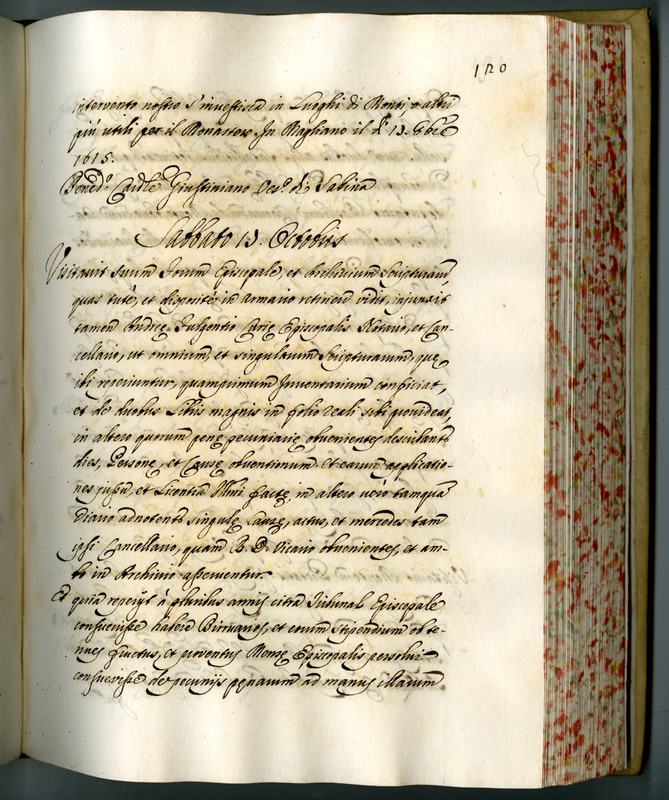 120
intervento nostro s'investisca in Luoghi di Monti, o altri
più utili per il Monastero. In Magliano il dì 13. 8bre
1615.
Bened.o Cardle Giustiniano Vesc.o di Sabina
Sabbato 13. Octobris
Visitavit suum Forum Episcopale, et Archivium Scripturarum,
quas tutè, et decenter in armario retineri vidit, injunxit
tamen Andreę Fulgentio Curię Episcopalis Notario, et Can-
cellario, ut omnium, et singularum Scripturarum, quę
ibi reperiuntur, quamprimum Inventarium conficiat,
et de duobus Libris magnis in folio reali sibi provideat,
in altero quorum penę pecuniarię obvenientes describantur
dies, Personę, et Causę obventionum et earum applicatio-
nes jussu, et Licentia Illmi factę in altero verò tamquā
Diario adnotentur singulę Causę, actus, et mercedes tam
ipsi Cancellario, quam R. D. Vicario obvenientes, et am-
bo in Archivio asserventur.
Et quia reperijt à pluribus annis citra Tribunal Episcopale
consuevisse habere Birruarios, et eorum stipendium ob te-
nues fructus, et proventus Mensę Episcopalis persolvi
consuevisse de pecunijs pęnarum ad manus illarum